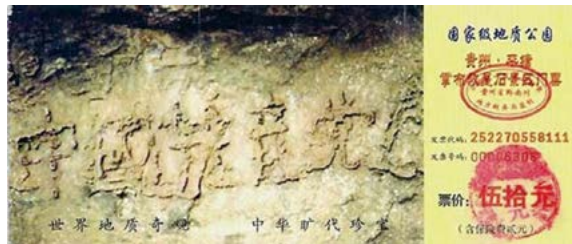 中國共产党
世界地质奇观 中华旷代珍宝
国家级地质公园
贵州·平塘
掌布藏字石景区门票
发票代码:252270558111
发票号码:
票价:伍拾元
(含保险费贰元)